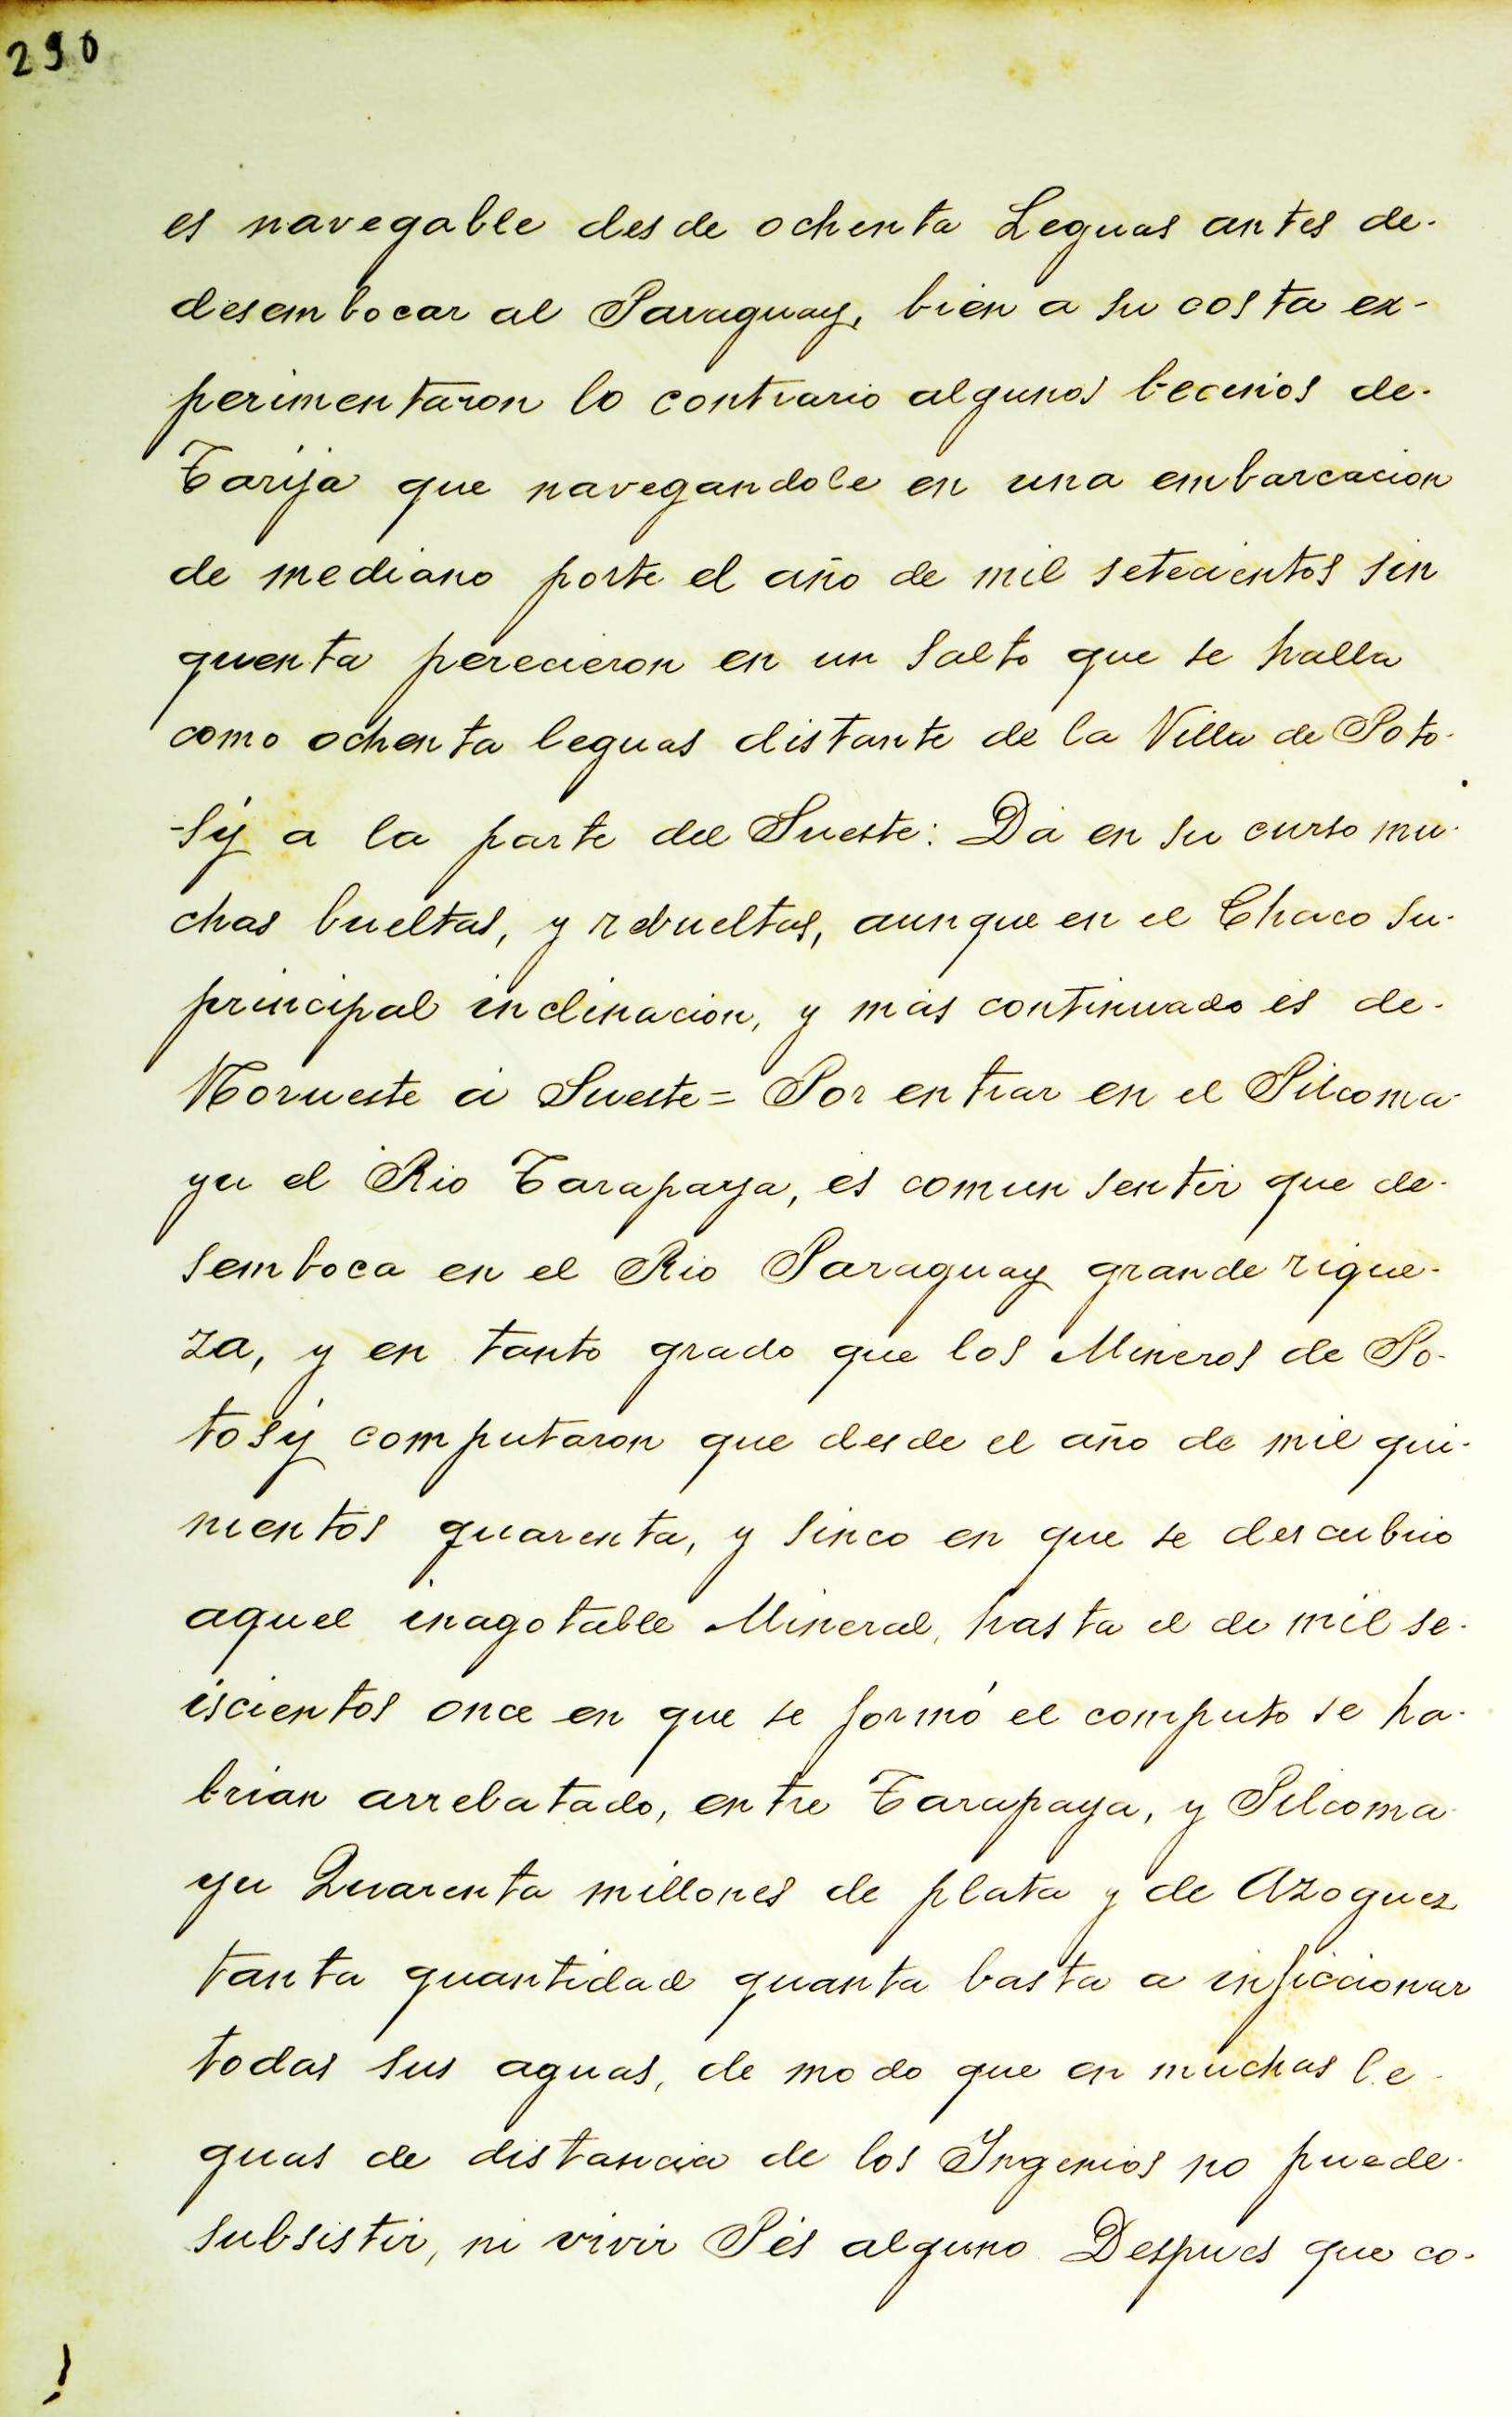 290
es navegable desde ochenta Leguas antes de-
desembocar al Paraguay, bien a su costa ex-
perimentaron lo contrario algunos becinos de-
Tarija que navegandole en una embarcacion
de mediano porte el año de mil setecientos sin
quenta perecieron en un salto que se halla
como ochenta leguas distante de la Villa de Poto-
-sÿ a la parte del Sueste: Dá en su curso mu-
chas bueltas, y rebueltas, aunque en el Chaco su-
principal inclinacion, y más continuado es de-
Norueste á Sueste= Por entrar en el Pilcoma-
yu el Rio Tarapaya, es comun sentir que de-
semboca en el Rio Paraguay grande rique-
za, y en tanto grado que los Mineros de Po-
tosÿ computaron que desde el año de mil qui-
nientos quarenta, y sinco en que se descubrio
aquel inagotable Mineral, hasta el de mil se-
iscientos once en que se formó el computo se ha-
brian arrebatado, entre Tarapaya, y Pilcoma-
yu Quarenta millones de plata y de Azoguez
tanta quantidad quanta basta a inficcionar
todas sus aguas, de modo que en muchas le-
guas de distancia de los Ingenios no puede-
subsistir, ni vivir Pés alguno Despues que co-